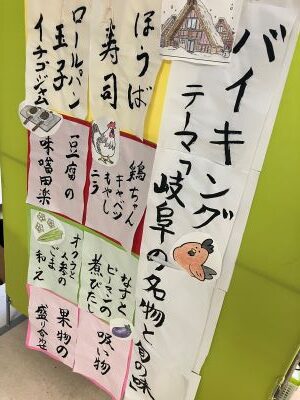 バイキング
テーマ「岐阜の名物と旬の味
ほうば
寿司
ロールパン
玉子
イチゴジャム
鶏ちゃん
キャベツ
もやし
ニラ
豆腐の
味噌田楽
なすと
ピーマンの
煮びたし
オクラと
人参の
ごま
和え
吸い物
果物の
盛り合わせ